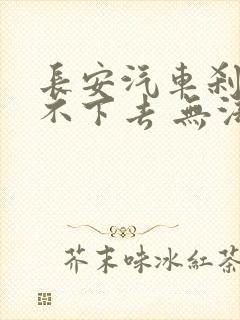 長安汽車剎
不下去 無法
芥末味冰紅茶